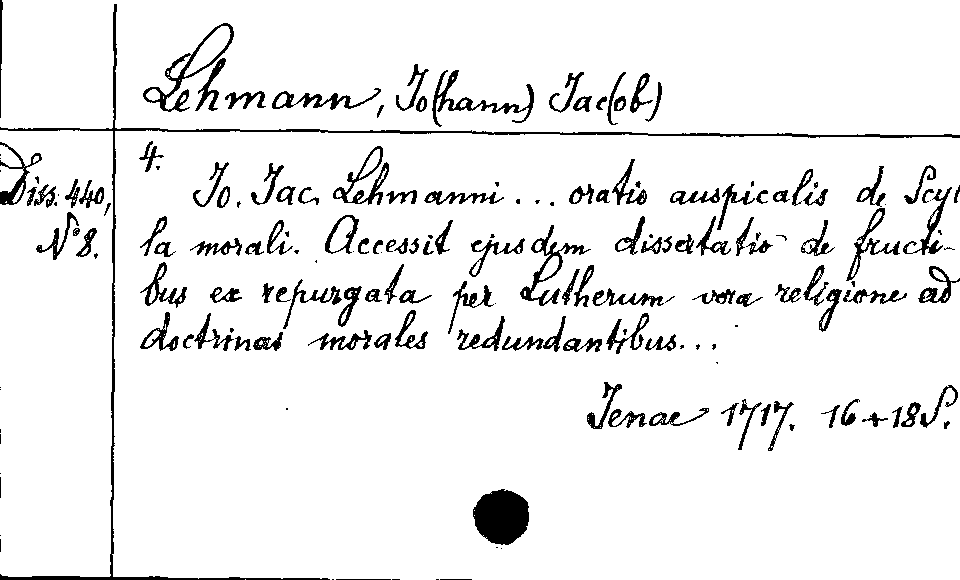 Lehmann, Jo(hann) Jac(ob)
4.
Diss. 440,
N° 8.
Jo. Jac. Lehmanni ... oratio auspicalis de Scyl
la morali. Accessit ejusdem dissertatio de fructi-
bus ex repurgata per Lutherum vera religione ad
doctrinas morales redundantibus...
Jenae 1717. 16+18 S.